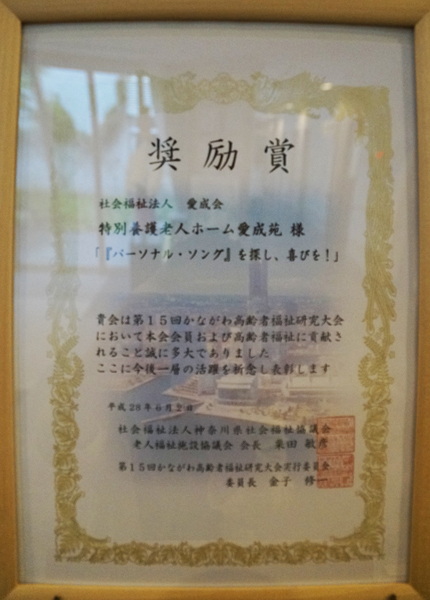 奨励賞
社会福祉法人 愛成会
特別養護老人ホーム愛成苑 様
「『パーソナル・ソング』を探し、喜びを!」
貴会は第15回かながわ高齢者福祉研究大会
において本会会員および高齢者福祉に貢献さ
れること誠に多大でありました
ここに今後一層の活躍を祈念し表彰します
平成28年6月2日
社会福祉法人神奈川県社会福祉協議会
老人福祉施設協議会 会長 栗田 敏彦
第15回かながわ高齢者福祉研究大会実行委員会
委員長 金子 修一